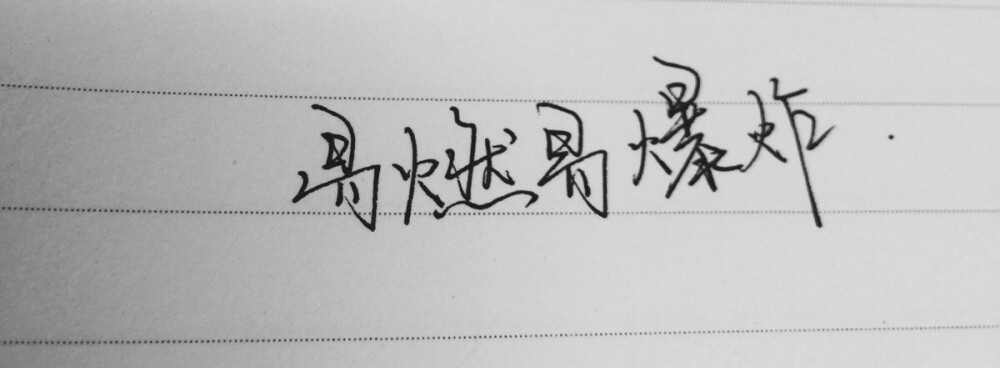 易燃易爆炸.